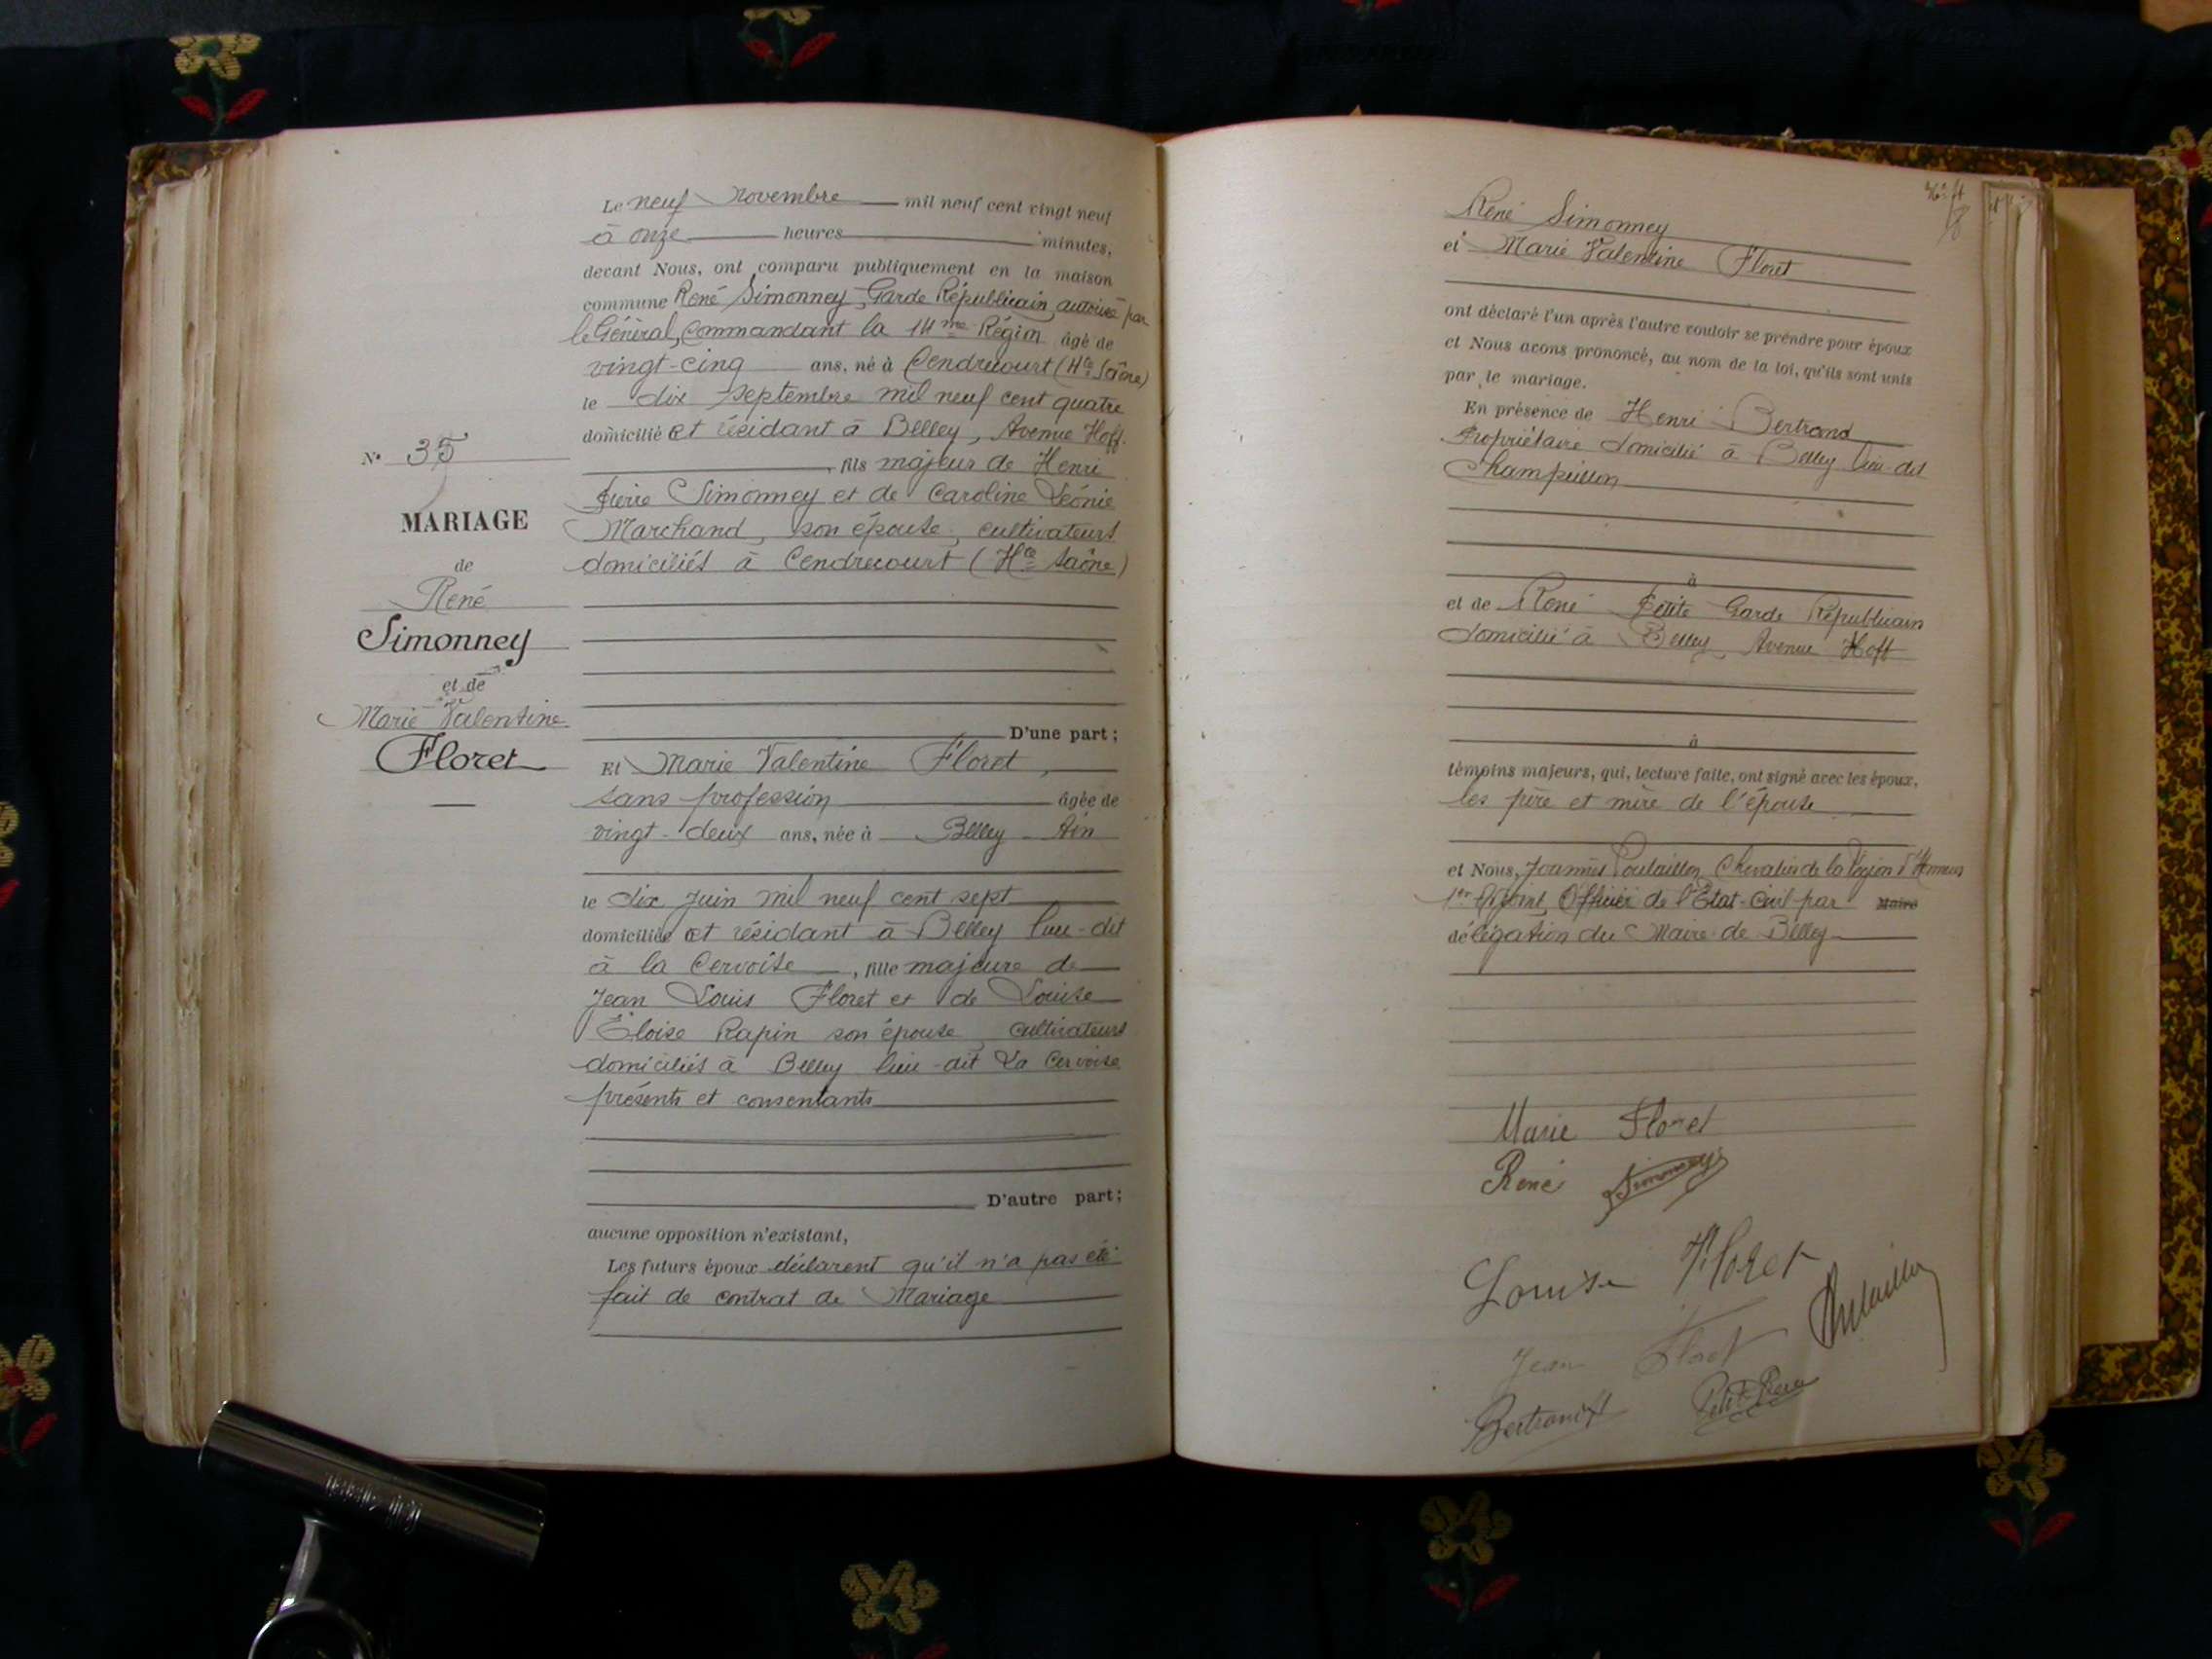 N° 35
MARIAGE
de
René
Simonney
et de
Marie Valentine
Floret
Le neuf novembre mil neuf cent vingt neuf
à onze heures minutes,
devant Nous, ont comparu publiquement en la maison
commune René Simonney, Garde Républicain, autorisé par
le Général, Commandant la 14me Région âgé de
vingt-cinq ans, né à Cendrecourt (Hte Saône)
le dix septembre mil neuf cent quatre
domicilié et résidant à Belley, Avenue Hoff.
, fils majeur de Henri
Pierre Simonney et de Caroline Léonie
Marchand, son épouse, cultivateurs
domiciliés à Cendrecourt (Hte Saône)
D'une part;
Et Marie Valentine Floret,
sans profession âgée de
vingt-deux ans, née à Belley Ain
le dix juin mil neuf cent sept
domiciliée et résidant à Belley lieu-dit
à la Cervoise, fille majeure de
Jean Louis Floret et de Louise
Éloise Rapin son épouse, cultivateurs
domiciliés à Belley lieu-dit La Cervoise
présents et consentants
D'autre part;
aucune opposition n'existant,
Les futurs époux déclarent qu'il n'a pas été
fait de contrat de Mariage
René Simonney
et Marie Valentine Floret
ont déclaré l'un après l'autre vouloir se prendre pour époux
et Nous avons prononcé, au nom de la loi, qu'ils sont unis
par le mariage.
En présence de Henri Bertrand
Propriétaire domicilié à Belley lieu dit
à
et de René Petite Garde Républicain
domicilié à Belley, Avenue Hoff
à
témoins majeurs, qui, lecture faite, ont signé avec les époux,
les père et mère de l'épouse
et Nous, Joannès Poulaillon, Chevalier de la Légion d'Honneur
1er Adjoint, Officier de l'Etat-Civil par Maire
délégation du Maire de Belley
Marie Floret
René Simonney
Louise Floret
Jean Floret
Bertrand H
Petite René